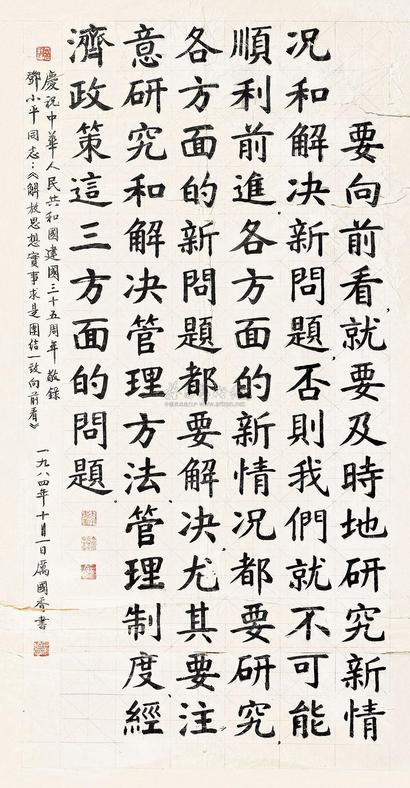 要向前看,就要及時地研究新情
况和解决新問題,否則我們就不可能
順利前進各方面的新情况都要研究,
各方面的新問題都要解决尤其要注
意研究和解决管理方法管理制度經
濟政策這三方面的問題.
慶祝中華人民共和國建國三十五周年敬錄
鄧小平同志:《解放思想實事求是團结一致向前看》
一九八四年十月一日厲國香書